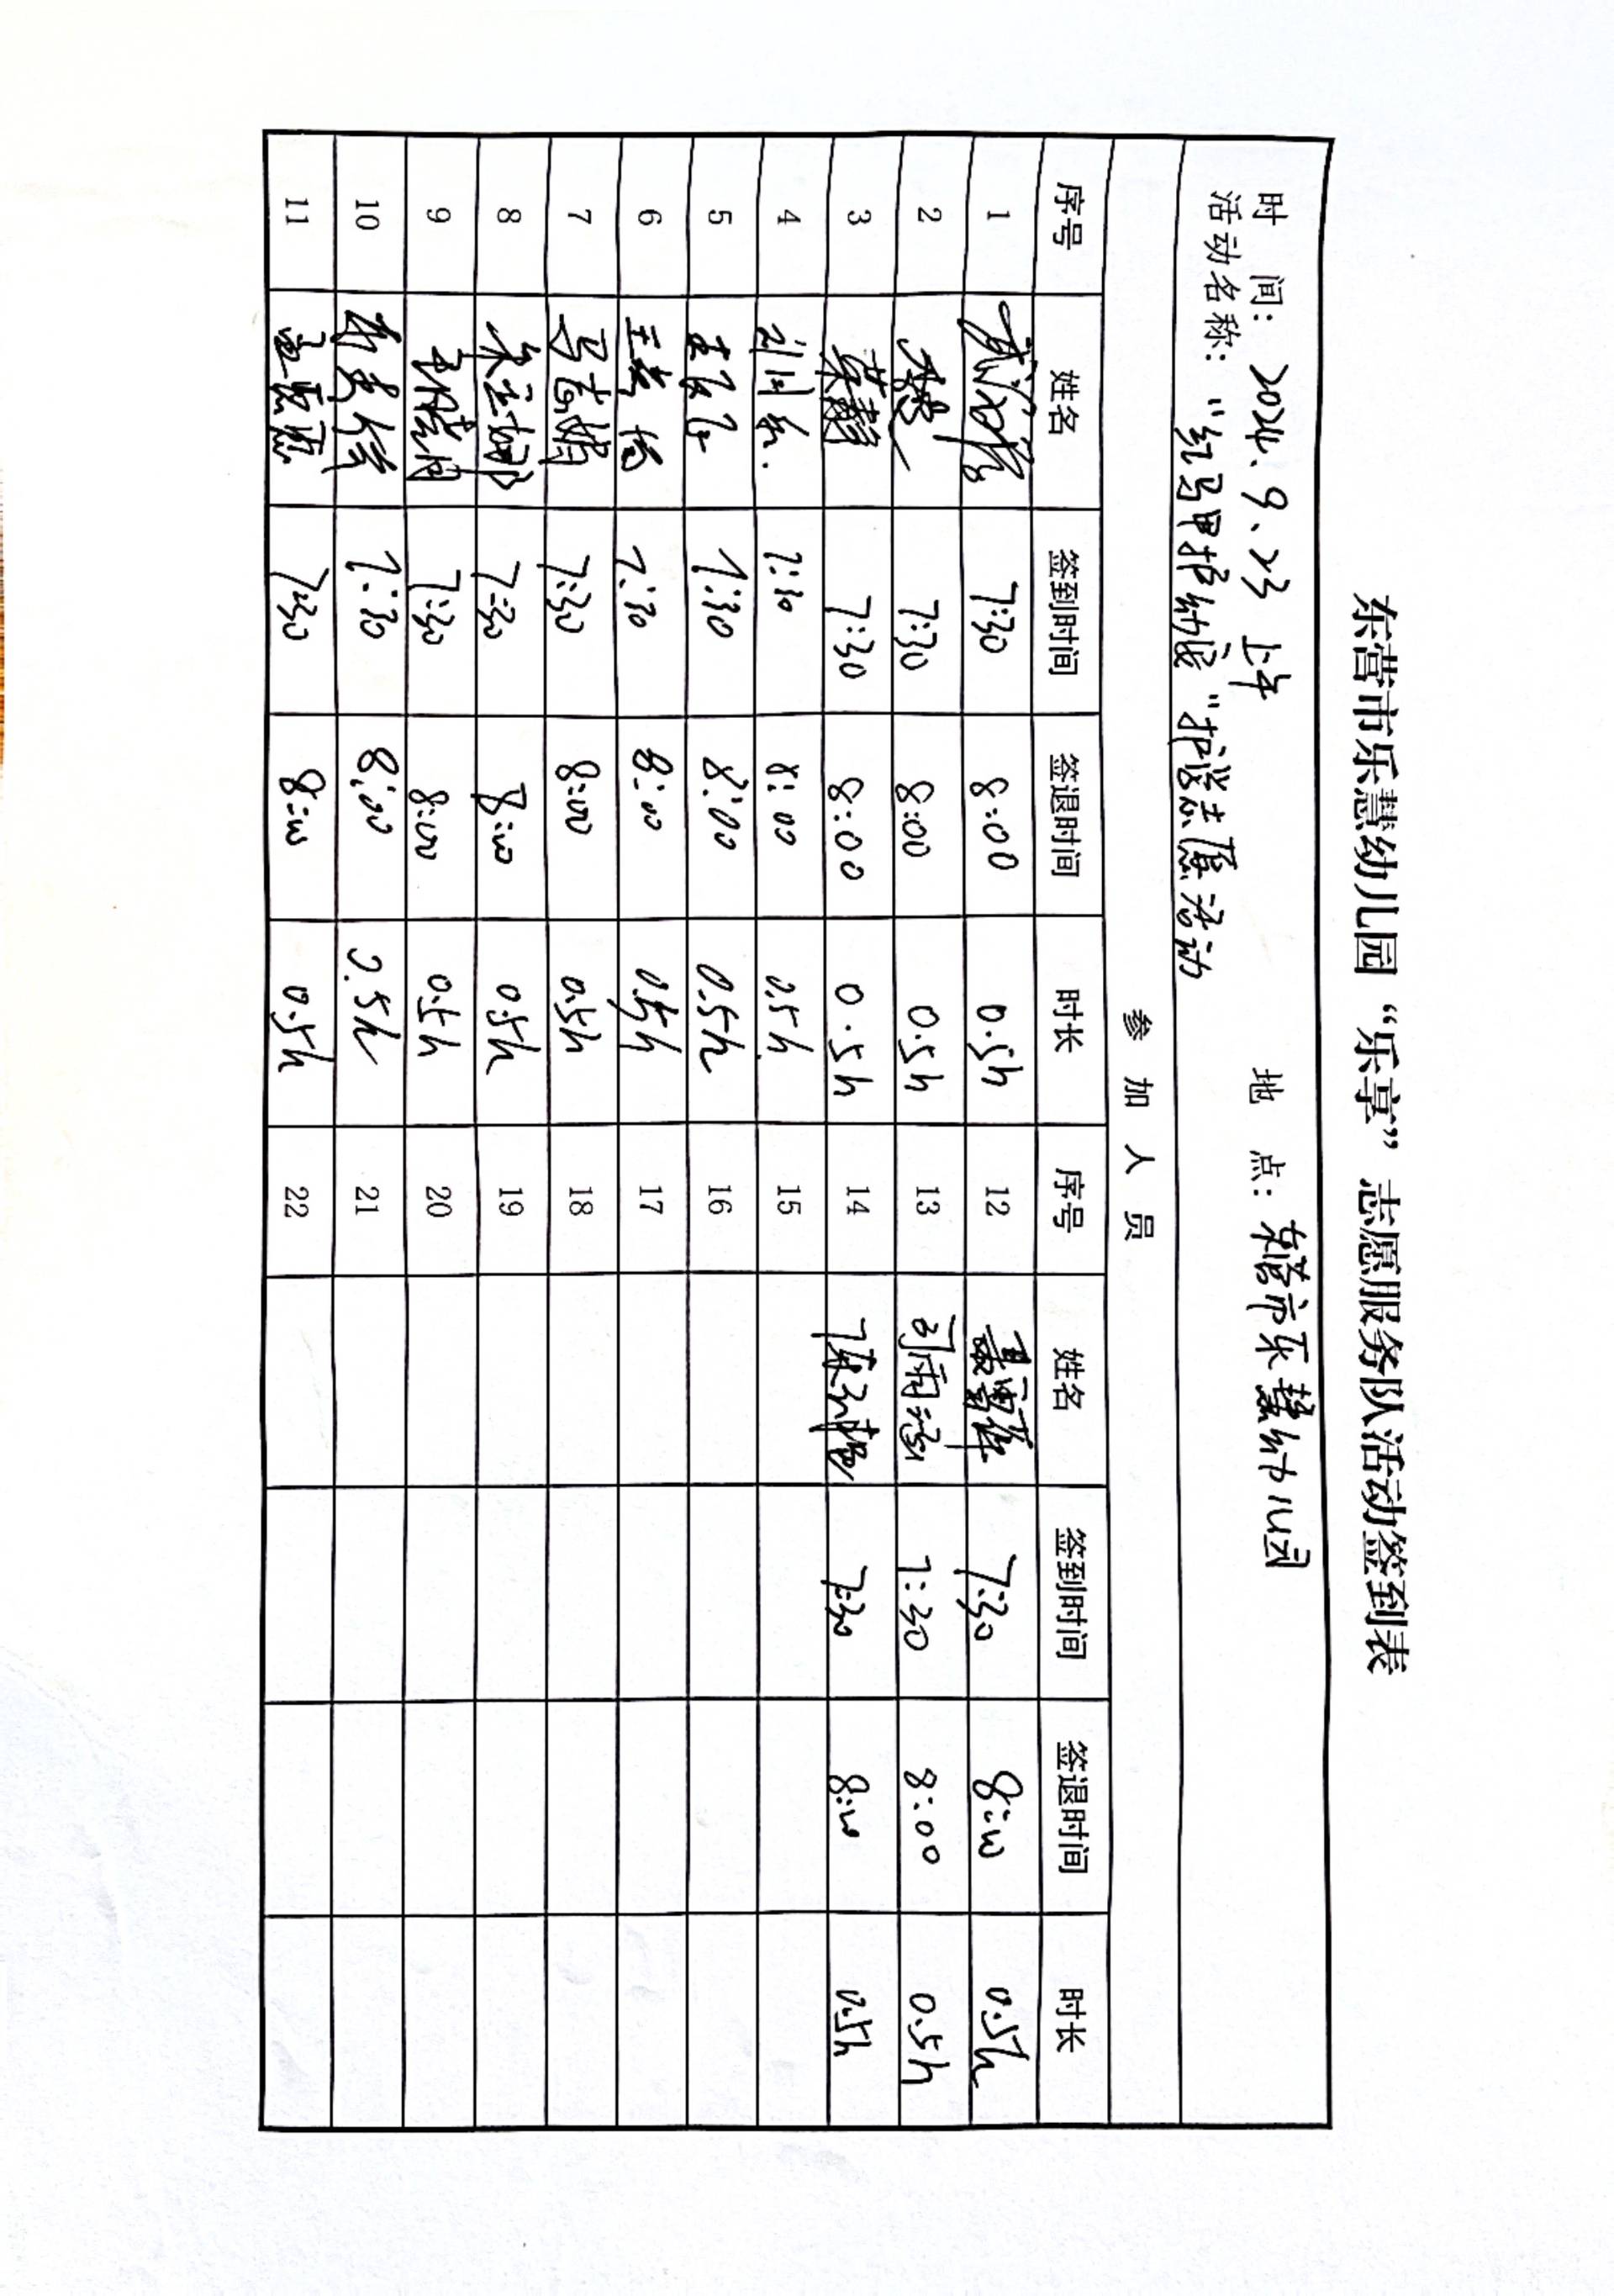 东营市乐慧幼儿园“乐享”志愿服务队活动签到表
时 间：2024.9.23 上午 地 点：东营市乐慧幼儿园
活动名称：“红马甲护幼岗”护学志愿活动
参 加 人 员
序号 姓名 签到时间 签退时间 时长 序号 姓名 签到时间 签退时间 时长
1 7:30 8:00 0.5h 12 7:30 8:00 0.5h
2 7:30 8:00 0.5h 13 7:30 8:00 0.5h
3 7:30 8:00 0.5h 14 7:30 8:00 0.5h
4 7:30 8:00 0.5h 15
5 7:30 8:00 0.5h 16
6 7:30 8:00 0.5h 17
7 7:30 8:00 0.5h 18
8 7:30 8:00 0.5h 19
9 7:30 8:00 0.5h 20
10 7:30 8:00 0.5h 21
11 7:30 8:00 0.5h 22